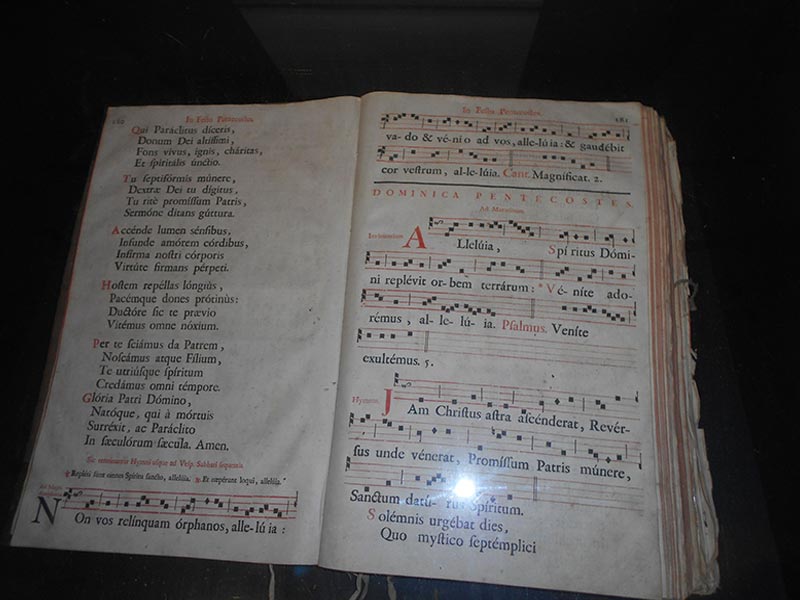 180 In Festo Pentecostes.
Qui Paráclitus díceris,
Donum Dei altíssimi,
Fons vivus, ignis, cháritas,
Et spiritális únctio.
Tu septifórmis múnere,
Dextræ Dei tu dígitus,
Tu ritè promíssum Patris,
Sermóne ditans gúttura.
Accénde lumen sénsibus,
Infunde amórem córdibus,
Infírma nostri córporis
Virtúte firmans pérpeti.
Hostem repéllas lóngiùs,
Pacémque dones prótinùs:
Ductóre sic te prævio
Vitémus omne nóxium.
Per te sciámus da Patrem,
Noscámus atque Fílium,
Te utriúsque spíritum
Credámus omni témpore.
Glória Patri Dómino,
Natóque, qui à mórtuis
Surréxit, ac Paráclito
In sæculórum sæcula. Amen.
Sic terminantur Hymni usque ad Vesp. Sabbati sequentis.
℣ Repléti sunt omnes Spíritu sancto, allelúia. ℟. Et cœpérunt loqui, allelúia.
Ad Magn.
NOn vos relínquam órphanos, alle-lú ia:
In Festo Pentecostes. 181
va-do & vé-nio ad vos, alle-lú ia: & gaudébit
cor vestrum, al-le-lúia. Cant. Magnificat. 2.
DOMINICA PENTECOSTES.
Ad Matutinum.
Invitatorium. ALlelúia, Spí ritus Dómi-
ni replévit or-bem terrárum: * Vé-níte ado-
rémus, al-le-lú-ia. Psalmus. Veníte
exultémus. 5.
Hymnus. JAm Christus astra ascénderat, Revér-
sus unde vénerat, Promíssum Patris múnere,
Sanctum datú-rus Spíritum.
Solémnis urgébat dies,
Quo mystico septémplici